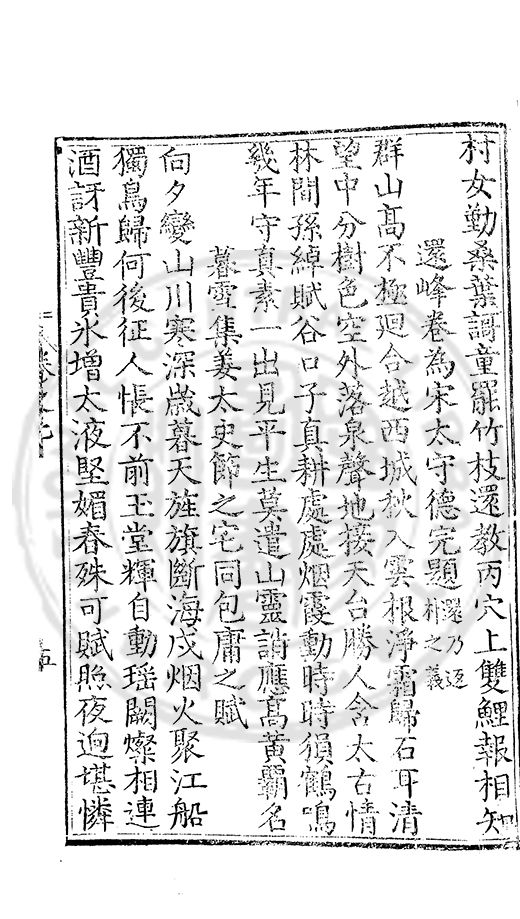 村女勤桑葉謌童罷竹枝還教丙穴上雙鯉報相知
還峰卷為宋太守德完題還乃返朴之義
群山高不極廻合越西城秋入雲根淨霜歸石耳清
望中分樹色空外落泉聲地接天台勝人含太古情
林間孫綽賦谷口子真耕處處烟霞動時時猿鶴鳴
幾年守真素一出見平生莫遣山靈誚應高黃霸名
暮雪集姜太史節之宅同包庸之賦
向夕變山川寒深歲暮天旌旗斷海戍烟火聚江船
獨鳥歸何後征人悵不前玉堂輝自動瑶闕燦相連
酒訝新豐貴氷增太液堅媚春殊可賦照夜迥堪憐
五